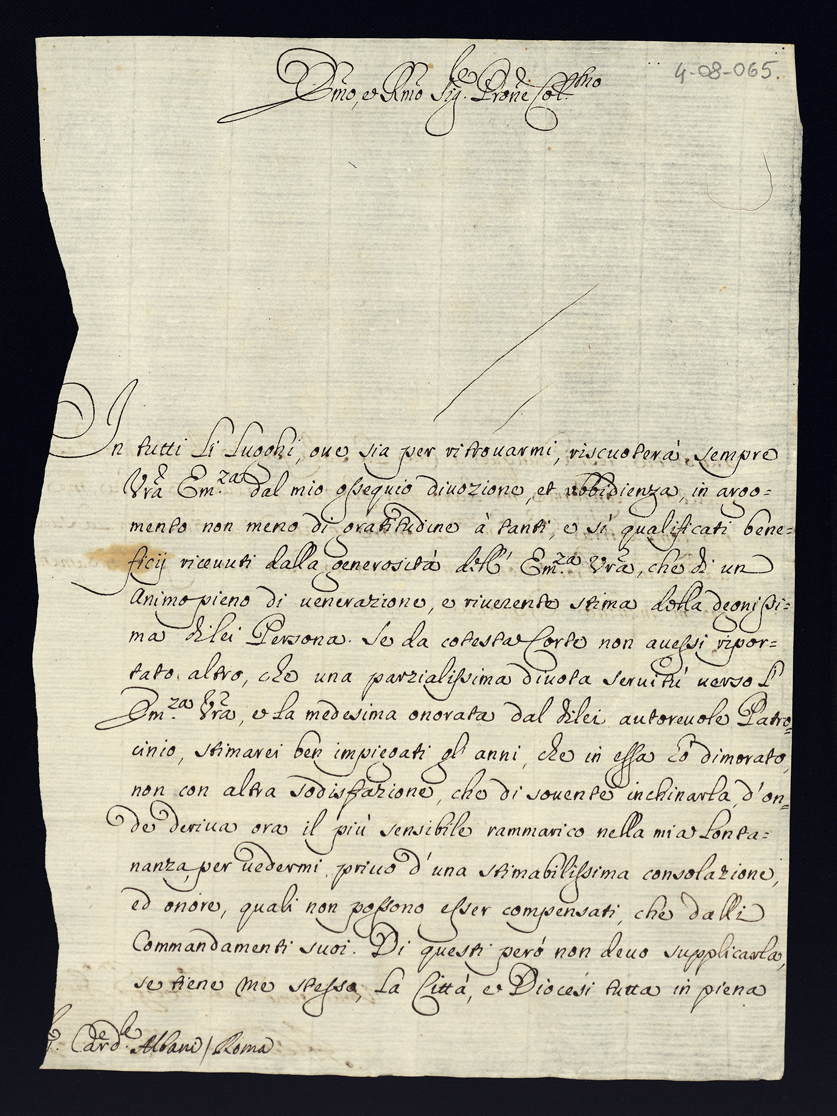 4-08-065
Emo, e Rmo Sig.re Prone Col.mo
In tutti li luoghi, oue sia per ritrouarmi, riscuoterà sempre
Vra Em.za dal mio ossequio diuozione, et ubbidienza, in argo=
mento non meno di gratitudine à tanti, e sì qualificati bene=
ficij riceuuti dalla generosità dell' Em.za Vra, che di un
Animo pieno di uenerazione, e riuerente stima della degnissi=
ma di lei Persona. Se da cotesta Corte non auessi ripor=
tato altro, che una parzialissima diuota seruitù uerso l'
Em.za Vra, e la medesima onorata dal di lei autoreuole Patro=
cinio, stimarei ben impiegati gl' anni, che in essa hò dimorato,
non con altra sodisfazione, che di souente inchinarla, d'on=
de deriua ora il più sensibile rammarico nella mia lonta=
nanza, per uedermi priuo d'una stimabilissima consolazione,
ed onore, quali non possono esser compensati, che dalli
Commandamenti suoi. Di questi però non deuo supplicarla,
se tiene me stesso, la Città, e Diocesi tutta in piena
Card.le Albani / Roma